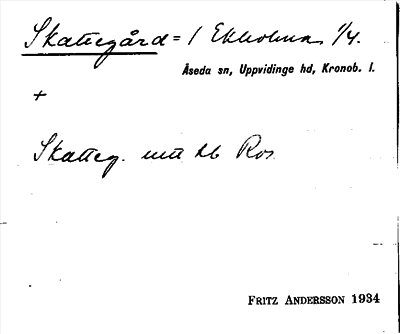 Skattegård = 1 Ekholma 1/4.
Åseda sn, Uppvidinge hd, Kronob. l.
+
Skatteg. utt hb Ros
FRITZ ANDERSSON 1934